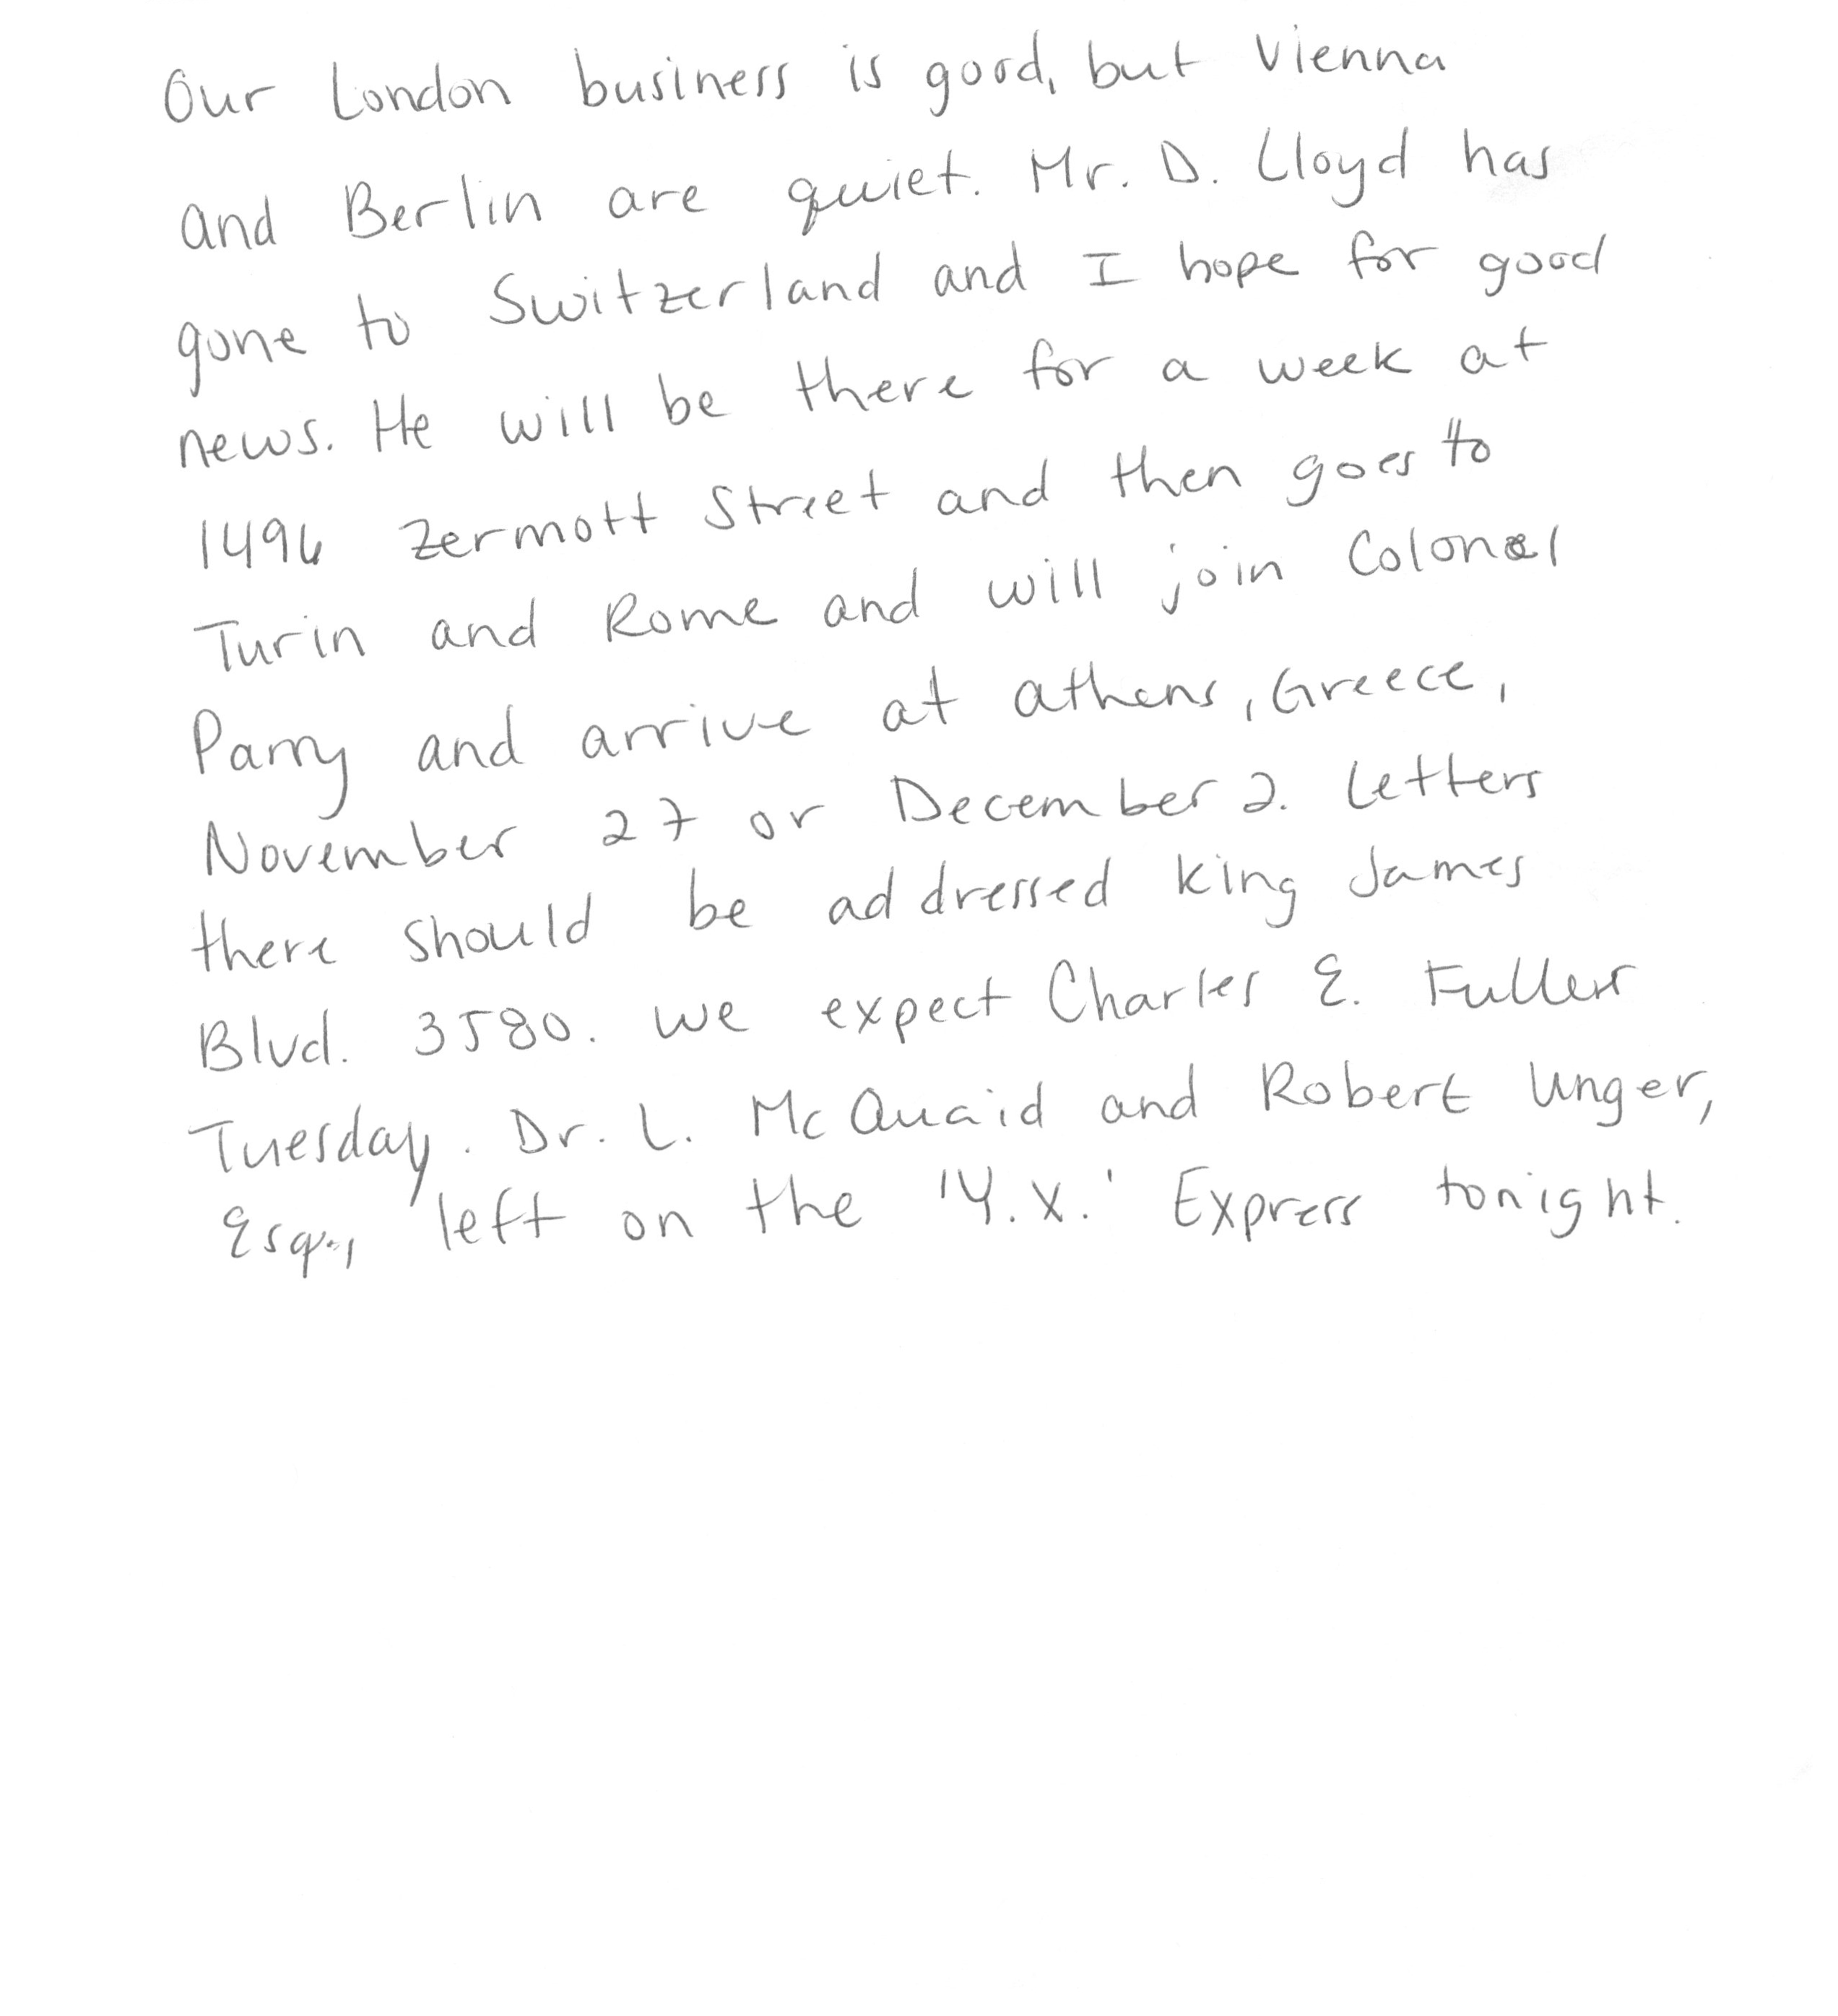 Our London business is good, but Vienna
and Berlin are quiet. Mr. D. Lloyd has
gone to Switzerland and I hope for good
news. He will be there for a week at
1496 Zermott Street and then goes to
Turin and Rome and will join Colonel
Parry and arrive at athens, Greece,
November 27 or December 2. Letters
there should be addressed King James
Blvd. 3580. We expect Charles E. Fuller
Tuesday. Dr. L. McQuaid and Robert Unger,
Esq., left on the 'Y.X.' Express tonight.